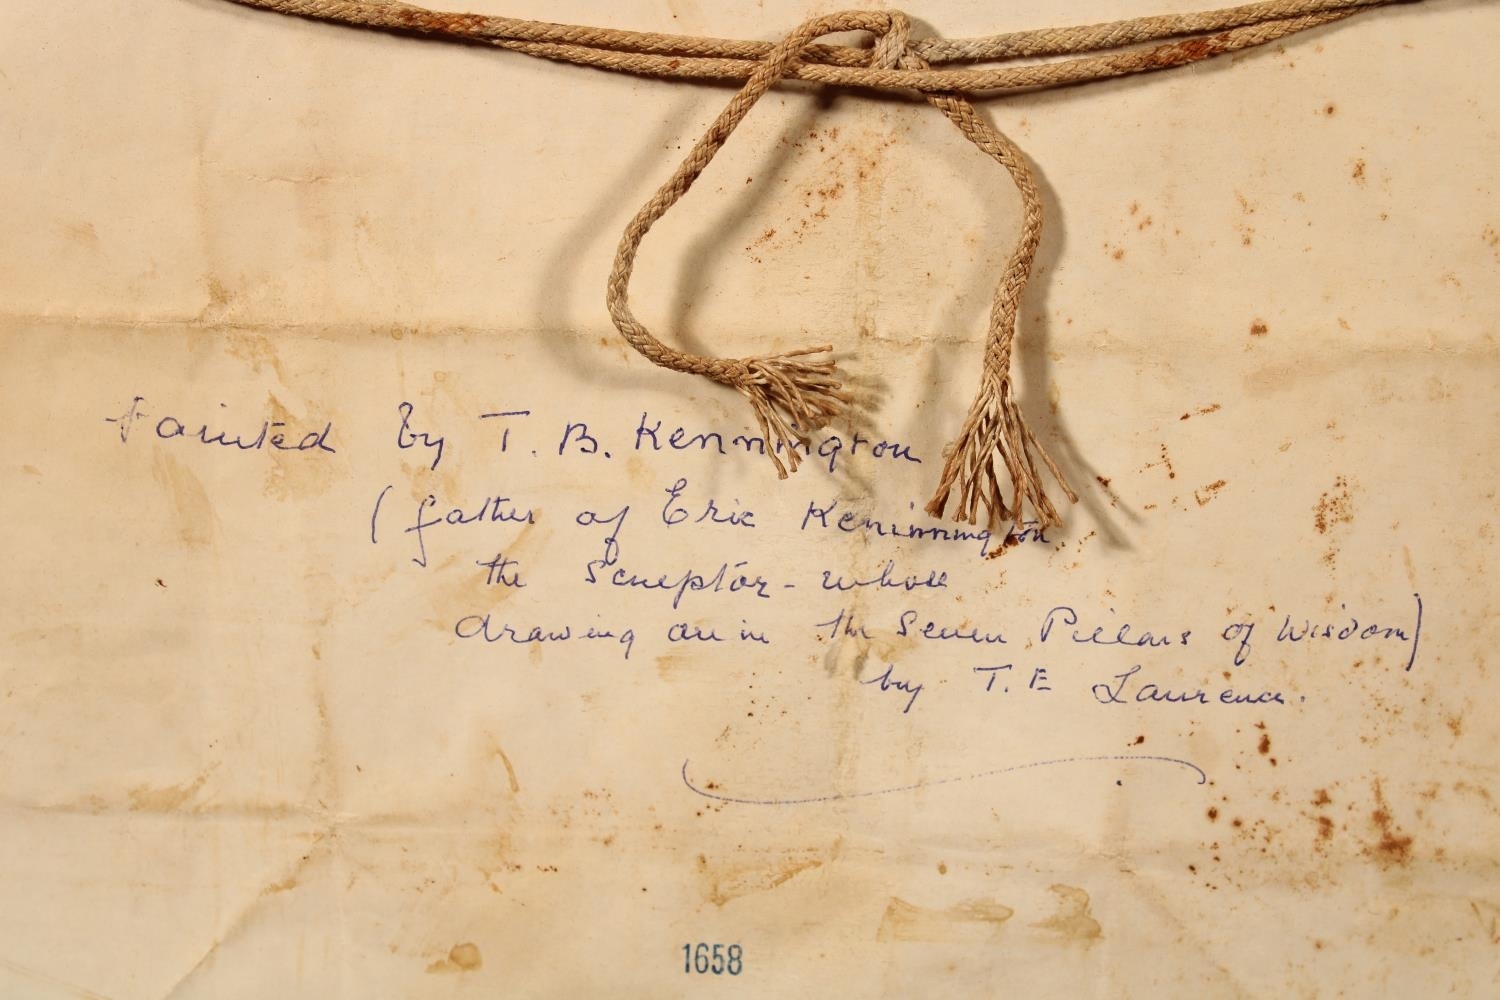 Painted by T. B. Kennington
(father of Eric Keninnington
the Sculptor - whose
drawing are in the Seven Pillars of Wisdom)
by T. E Lawrence.
1658